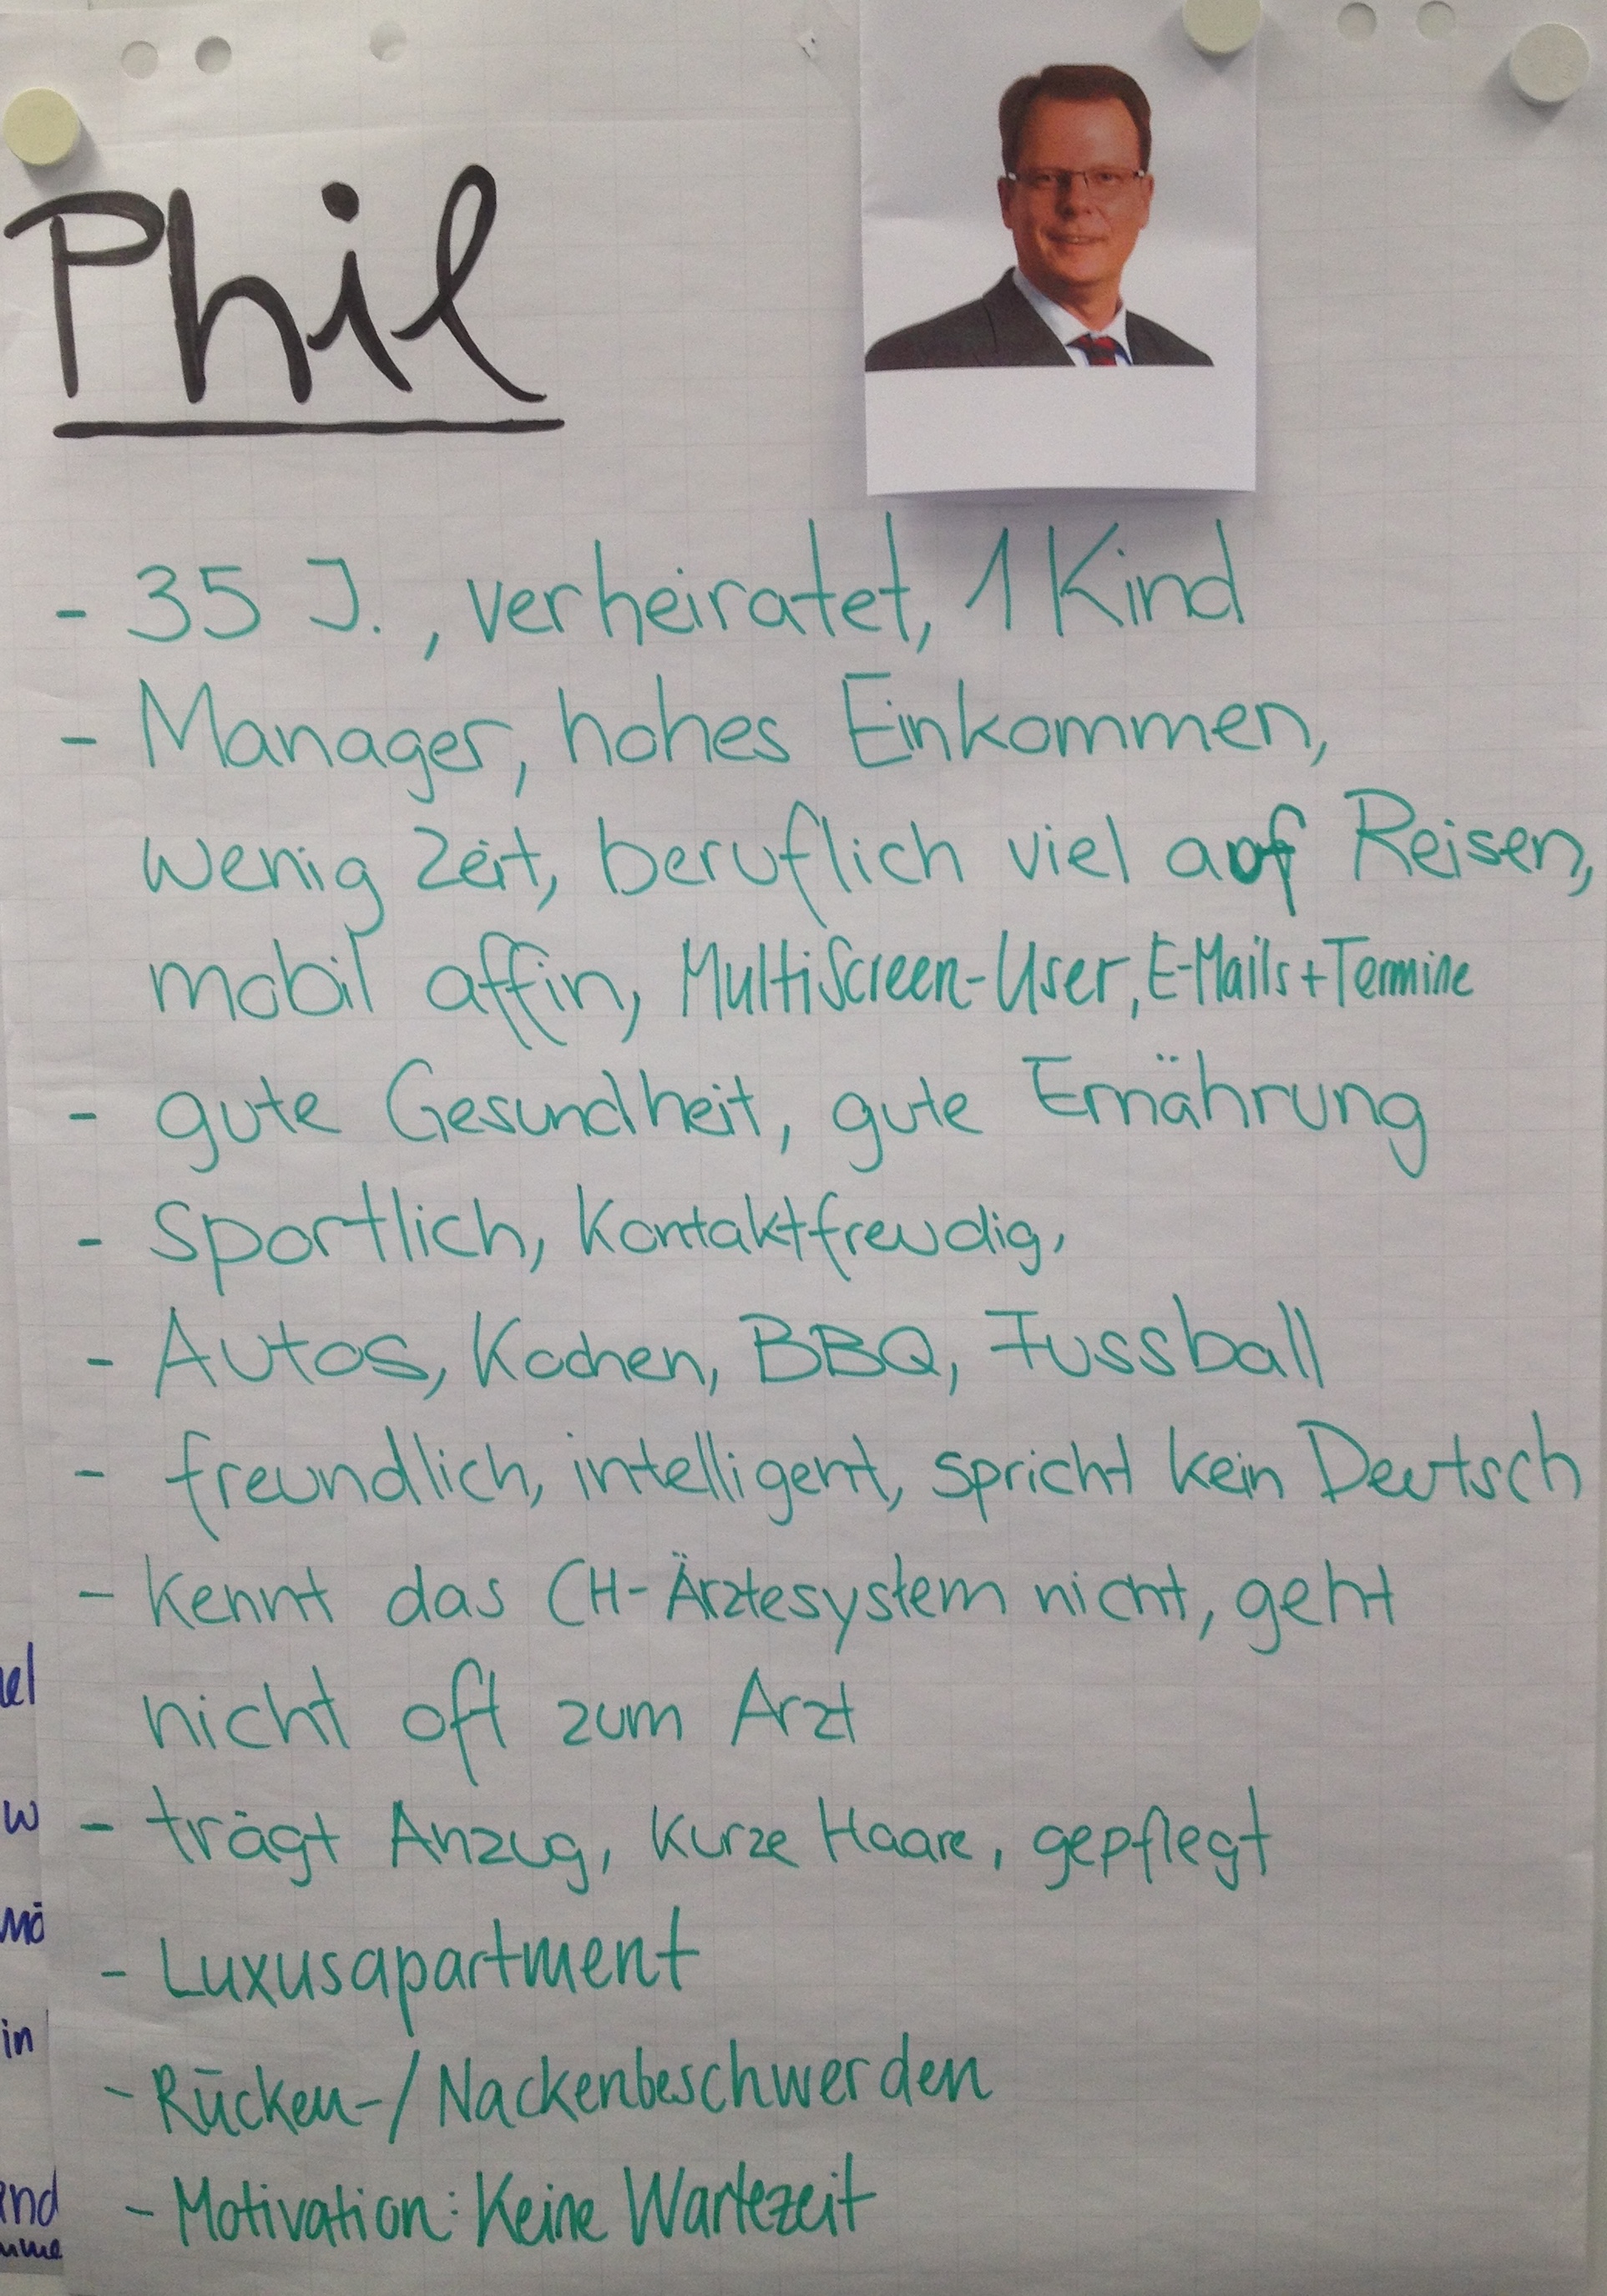 Phil
- 35 J., verheiratet, 1 Kind
- Manager, hohes Einkommen,
wenig Zeit, beruflich viel auf Reisen,
mobil affin, MultiScreen-User, E-Mails+Termine
- gute Gesundheit, gute Ernährung
- sportlich, kontaktfreudig,
- Autos, Kochen, BBQ, Fussball
- freundlich, intelligent, spricht kein Deutsch
- kennt das CH-Ärztesystem nicht, geht
nicht oft zum Arzt
- trägt Anzug, kurze Haare, gepflegt
- Luxusapartment
- Rücken-/Nackenbeschwerden
- Motivation: Keine Wartezeit
el
w
mö
in
ind